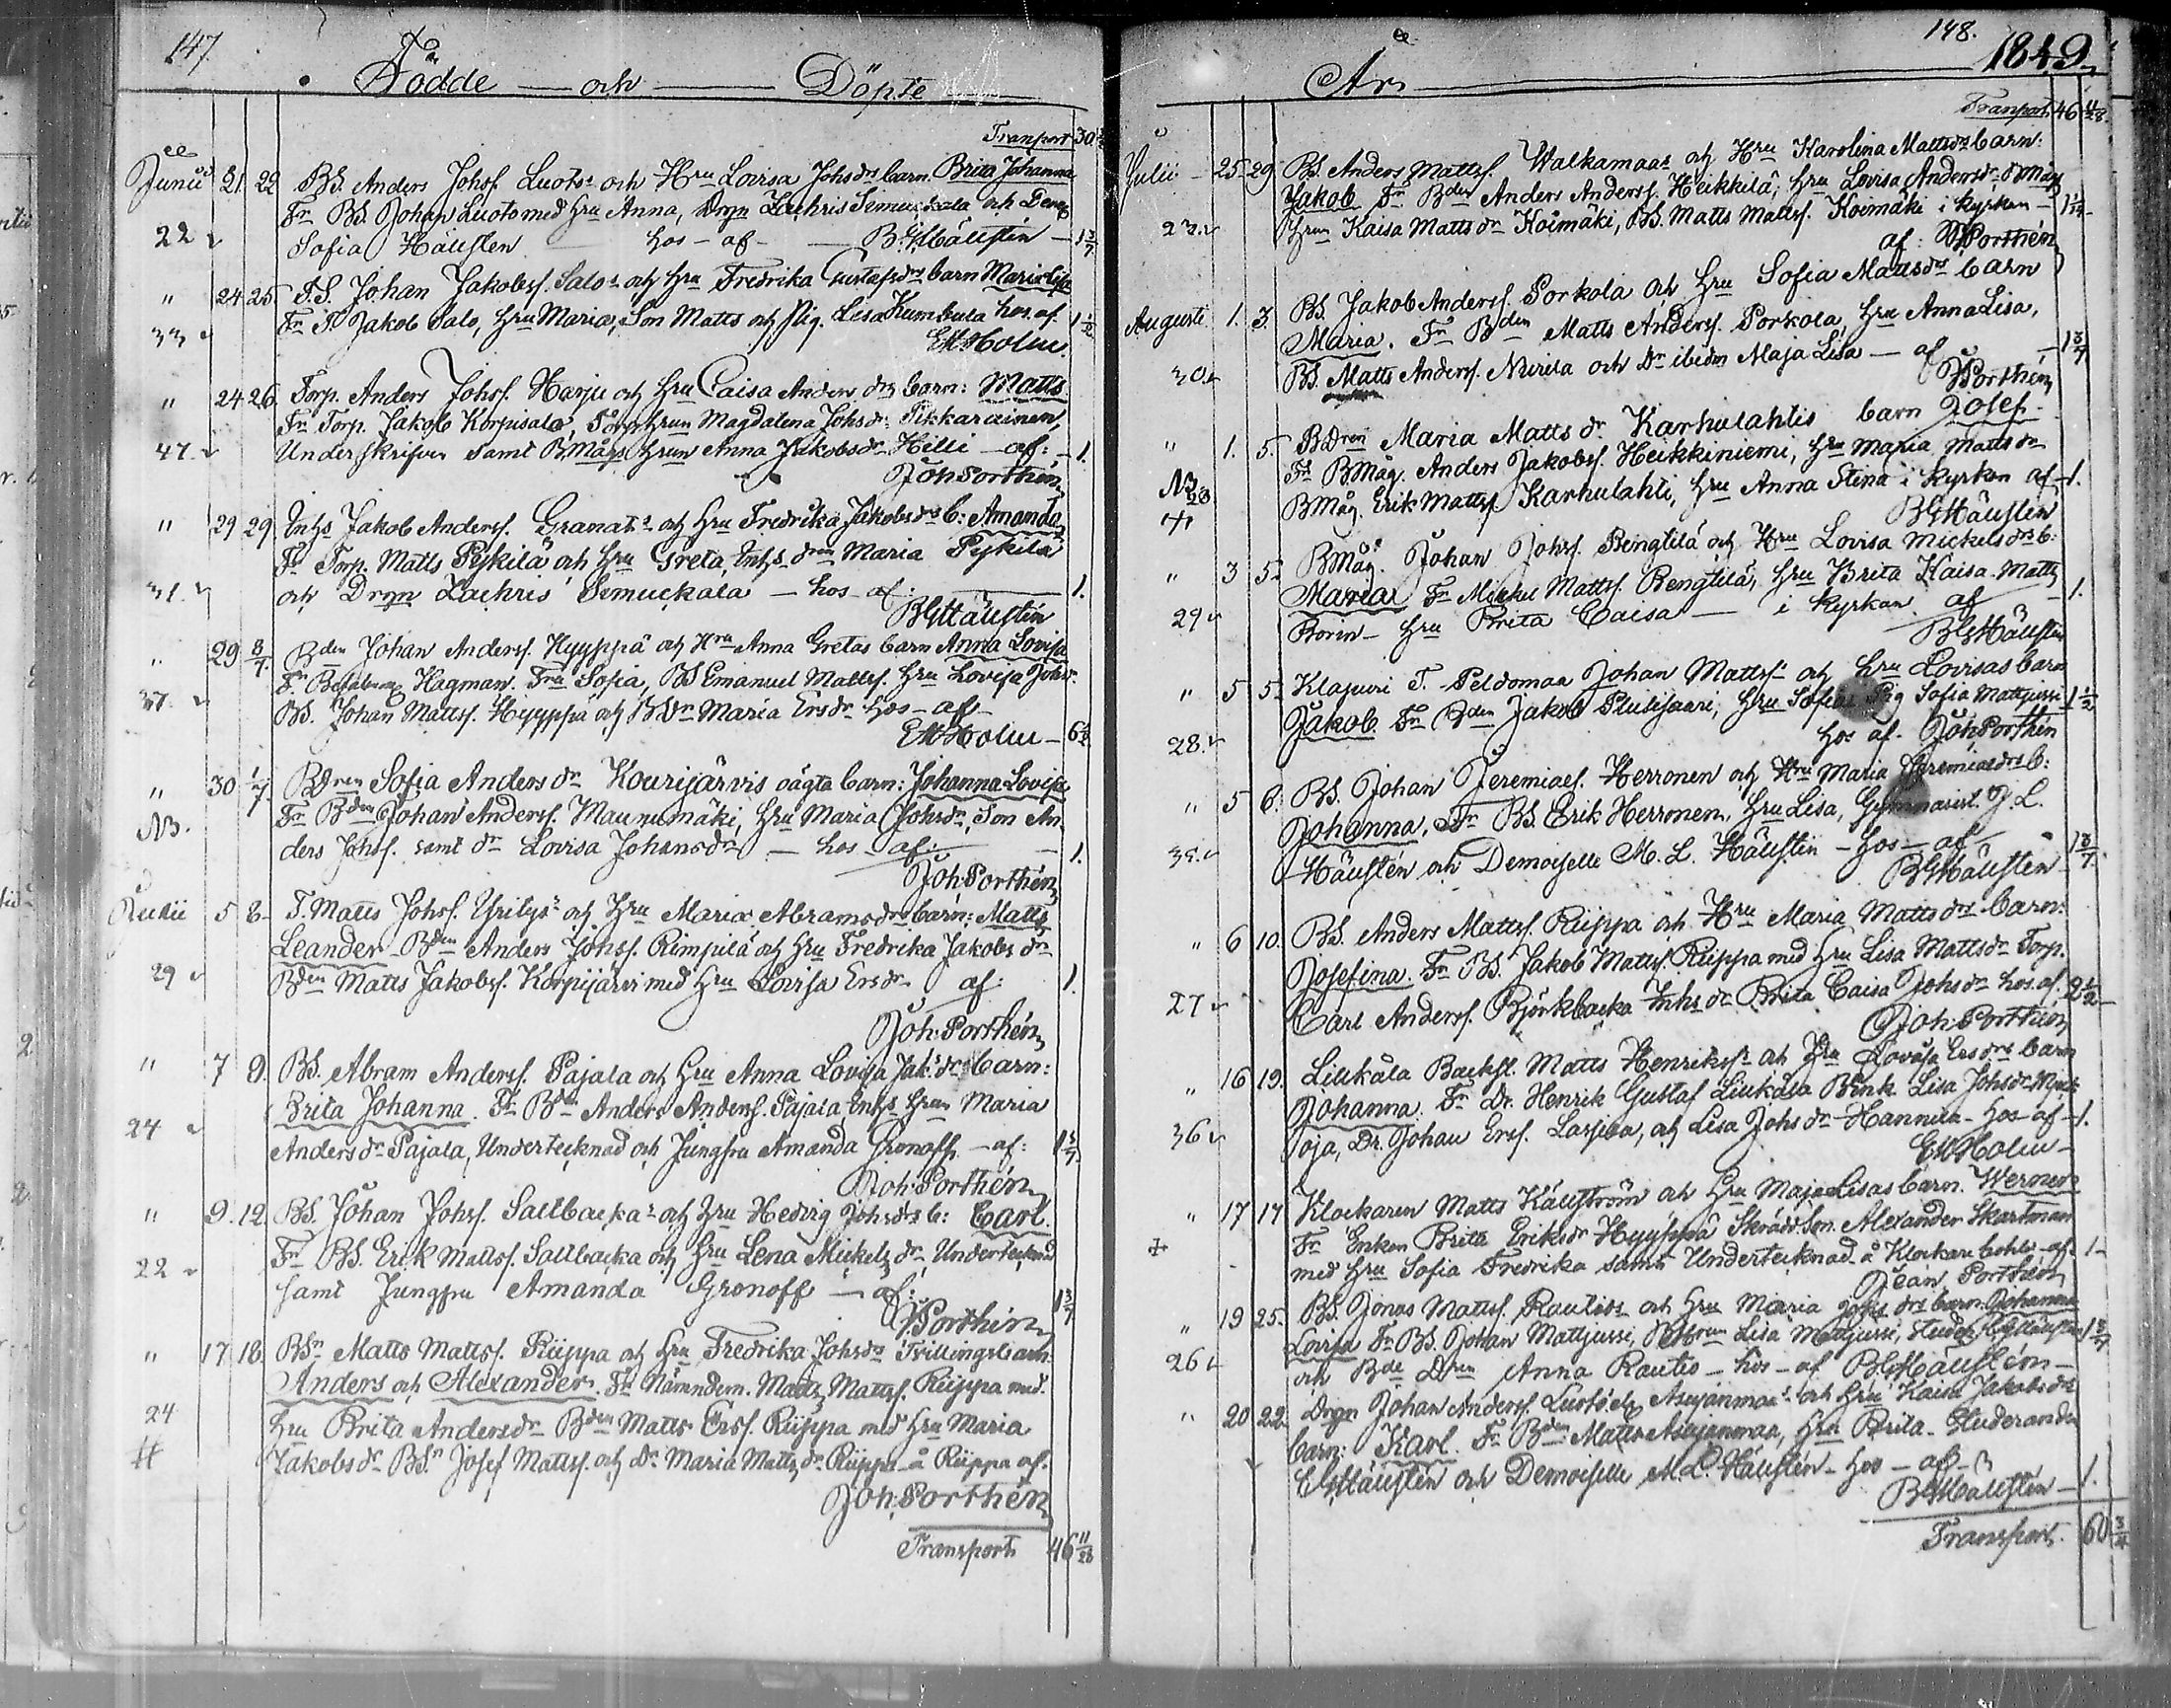 147.
Födde — och — Döpte
Transport 30
Junii 21. 22 BS. Anders Johss. Luoto s och Hru Lovisa Johsdrs barn. Brita Johanna
Fr BS. Johan Luoto med hru Anna, Drgn Zachris Semuckala och
22 Sofia Hällsten hos - af - BGHällstén — 1 3/7
" 24 25 T.S. Johan Jakobss. Salo s och hru Fredrika Gustafsdrs barn Maria Lisa
Fr T. Jakob Salo, hru Maria, Son Matts och Pig. Lisa Kumbula hos. af. 1 1/2
33 EMHolm.
" 24 26. Torp. Anders Johss. Harju och hru Caisa Anders drs barn: Matts
Fr Torp. Jakob Korpisalo, Torp hrun Magdalena Johsdr Pikkarainen,
47. Underskrifven samt BMågs hrun Anna Jakobsdr Hilli — af: — 1.
Joh Porthén
" 29 29. Inhs Jakob Anderss. Granat s och hru Fredrika Jakobsdrs b: Amanda
Fr Torp. Matts Peskilä och hru Greta, Inhs drn Maria Peskilä
31. och Drgn Zachris Semuckala — hos - af: 1.
BGHällstén
" 29 3/7. Bden Johan Anderss. Hyyppä och Hru Anna Gretas barn Anna Lovisa
Fr Hagman. Fru Sofia, BS Emanuel Mattss. hru Lovisa Johsdr
37. BS. Johan Mattss. Hyyppä och BDr Maria Ersdr hos - af -
EMHolm — 6
" 30 1/7. BDren Sofia Anders dr Kourijärvis oägta barn: Johanna Lovisa
NB. Fr Bden Johan Anderss. Maunumäki, hru Maria Johsdr, Son An-
ders Johss. samt dr Lovisa Johansdr — hos - af: 1.
Joh. Porthén
Julii 5 8 T. Matts Johss. Yrilys och Hru Maria Abramsdrs barn: Matts
Leander Bden Anders Johss. Rimpilä och hru Fredrika Jakobs dr
29 Bden Matts Jakobss. Korpijärvi med hru Lovisa Ersdr af: 1.
Joh. Porthén
" 7 9. BS. Abram Anderss. Pajala och hru Anna Lovisa Jak. drs barn:
Brita Johanna. Fr Bdn Anders Anderss. Pajala Inhs hrun Maria
24 Andersdr Pajala, Undertecknad och Jungfru Amanda Gronoff — af: 1 3/7.
Joh: Porthén
" 9. 12. BS. Johan Johss. Sallbacka s och hru Hedvig Johsdrs b: Carl.
Fr BS. Erik Mattss. Sallbacka och hru Lena Mickels dr, Undertecknad
22 samt Jungfru Amanda Gronoff — af: 1 3/7
J. Porthén
" 17 18. BSn Matts Mattss. Riippa och hru Fredrika Johsdrs Tvillingsbarn
Anders och Alexander. Fr Nämndem. Matts Mattss. Riippa med.
24 hru Brita Andersdr Bden Matts Erss. Riippa med hru Maria
# Jakobsdr BSn Josef Mattss. och dr Maria Matts dr Riippa å Riippa af.
Joh: Porthén
Transport 46 11/28
148.
År 1849.
Transport 46 11/28
Julii 25 29 BS. Anders Mattss. Walkamaa s och Hru Karolina Mattsdrs barn:
Jakob Fr Bden Anders Anderss. Heikkilä; hru Lovisa Andersdr, BMåg
23. hrun Kaisa Mattsdr Koimäki, BS. Matts Mattss. Koimäki i kyrkan — 1
af: JPorthén
Augusti 1. 3. BS. Jakob Anderss. Porkola och hru Sofia Mattsdrs barn
Maria. Fr Bden Matts Anderss. Porkola, hru Anna Lisa,
30. BS. Matts Anderss. Nurila och Dr ibidm Maja Lisa — af — 1 3/7
J Porthén
" 1. 5. BDren Maria Matts dr Karhulahtis barn Josef.
NB Fr BMåg. Anders Jakobss. Heikkiniemi, hru Maria Mattsdr
28 BMåg. Erik Mattss Karhulahti, hru Anna Stina i kyrkan af — 1.
BGHällstén
" 3 5. BMåg. Johan Johss. Bengtilä och Hru Lovisa Mickelsdrs b:
Maria Fr Mickel Mattss. Bengtilä, hru Brita Kaisa. Matts
29 Borin — hru Brita Caisa — i kyrkan af 1.
BGHällstén
" 5 5. Klapuri T. Peldomaa Johan Mattss och hru Lovisas barn
Jakob. Fr Bden Jakob Plusisaari, hru Sofia Pig Sofia Mattjussi 1 1/2
28. hos af. Joh: Porthén
" 5 6. BS. Johan Jeremiaes. Herronen och Hru Maria Jeremiaedrs b:
Johanna, Fr BS. Erik Herronen, hru Lisa, Gymnasist. J. L.
35. Hällstén och Demoiselle M. L. Hällstén — hos — af 1 3/7.
BGHällstén
" 6 10. BS. Anders Mattss. Riippa och Hru Maria Mattsdrs barn:
Josefina. Fr BS. Jakob Mattss. Riippa med hru Lisa Mattsdr Torp.
27 Carl Anderss. Björkbacka Inhs dr Brita Caisa Johsdr hos. af. 2 1/2
Joh: Porthén
" 16 19. Liukala Backst. Matts Henrikss och hru Lovisa Ersdrs barn
Johanna. Fr Dr. Henrik Gustaf Liukala Bienk Lisa Johsdr
36 oja, Dr. Johan Erss. Lassila, och Lisa Johs dr Hannula — hos — af — 1.
EMHolm —
" 17 17 Klockaren Matts Källström och hru Maja Lisas barn. Werner
Fr Enkan Brita Eriksdr Hyyppä Skrädd. Son. Alexander Skartman
+ med hru Sofia Fredrika samt Undertecknad å Klockare bohlet af. 1 —
Jean Porthén
" 19 25. BS. Jonas Mattss. Rautio s och hru Maria Johs drs barn Johanna
Lovisa Fr BS. Johan Mattjussi, Lisa Mattjussi, Hällstén 1 3/7
26 och Bde Dren Anna Rautio — hos — af BGHällstén —
" 20 22. Drgn Johan Anderss. Asujanmaa s och hru Kaisa Jakobsdrs
barn: Karl. Fr Bden Matts Asujanmaa, hru Brita — Studeranden
C G Hällstén och Demoiselle M. L. Hällstén — hos — af —
BGHällstén — 1.
Transport. 60 3/4